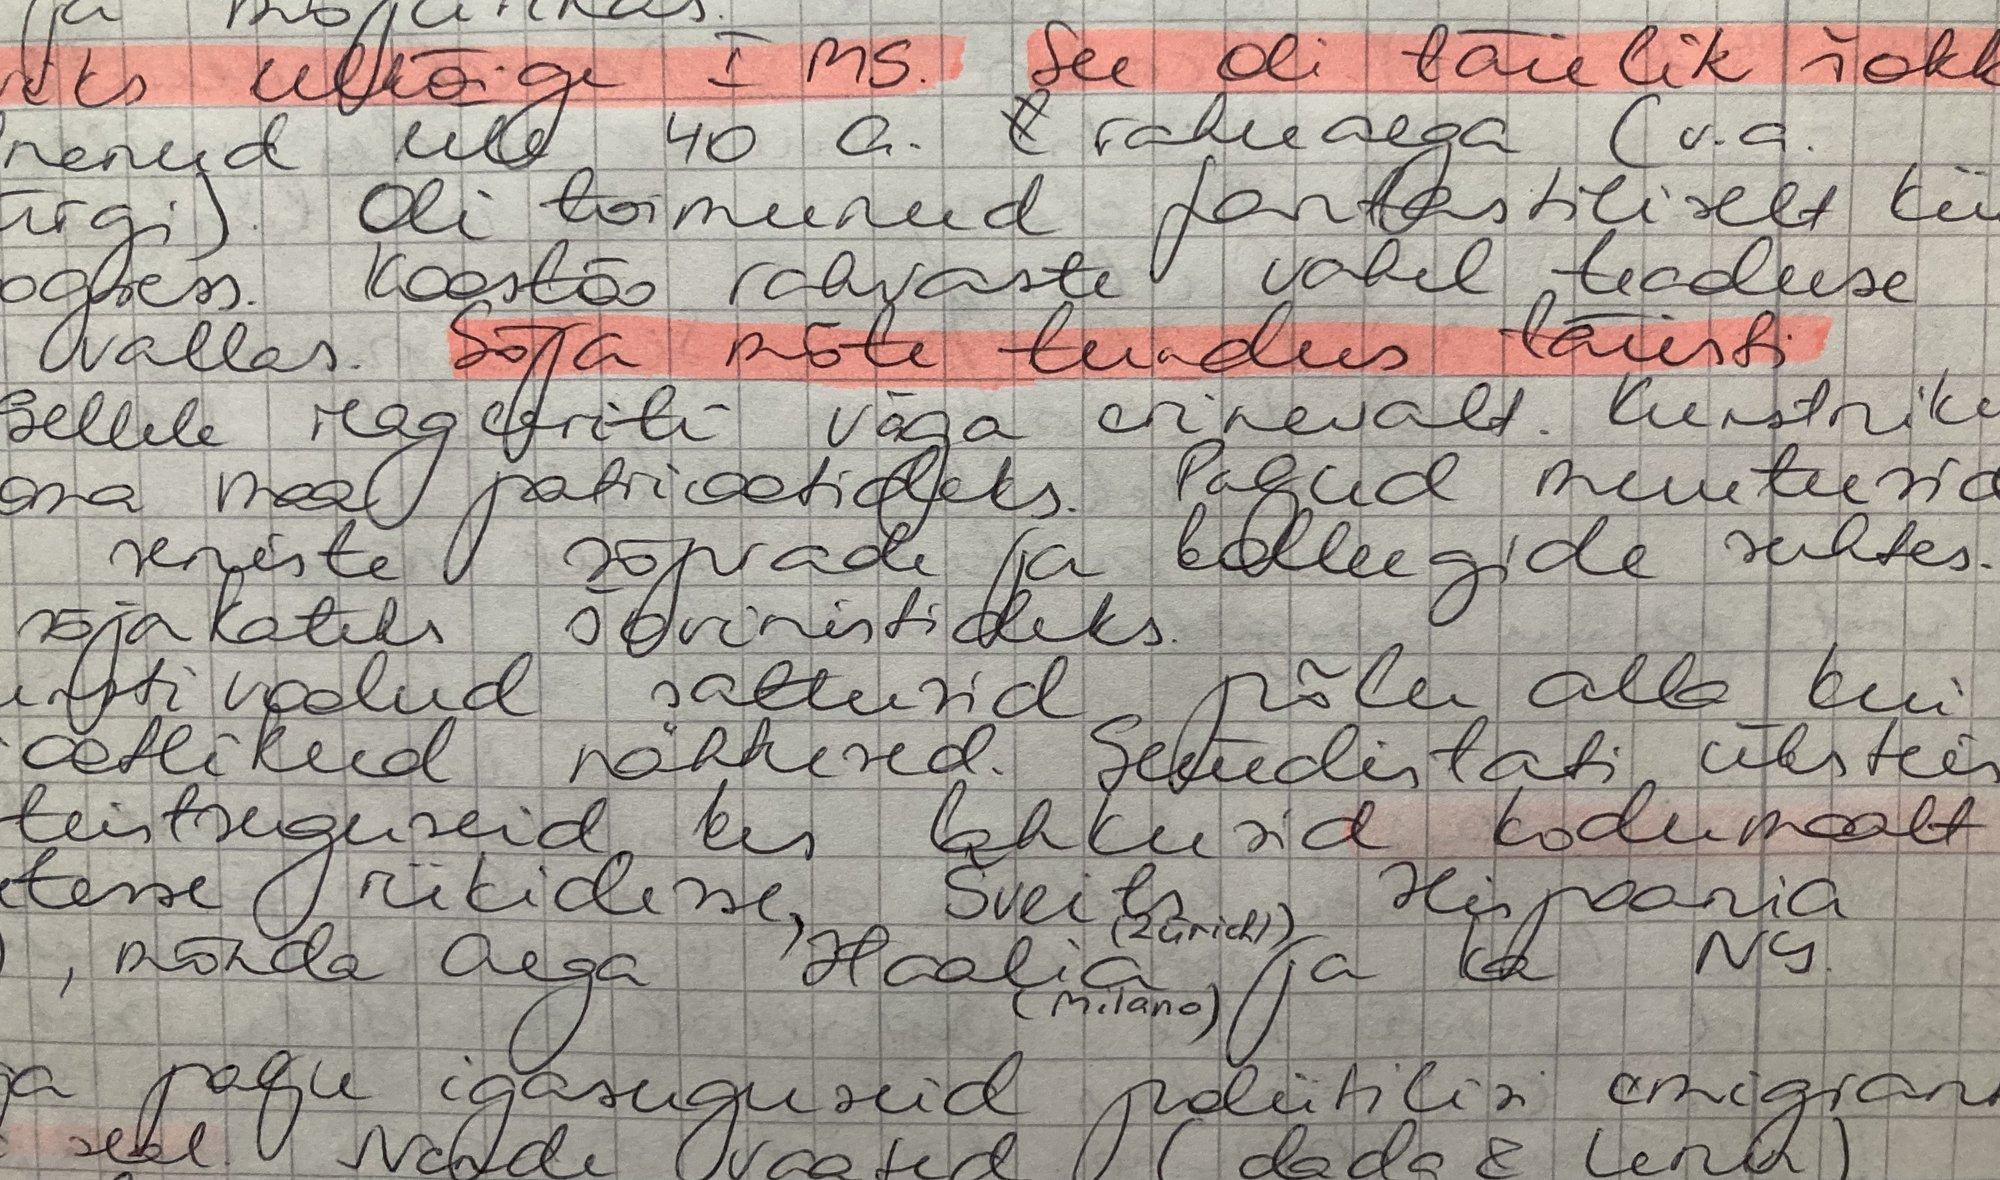 ja mõjukas.
eks ülkõige I MS. See oli täielik šokk
nenud üle 40 a. rahuaega (v.a.
ürgi). Oli toimunud fantastiliselt kii
ogress. Koostöö rahvaste vahel teaduse
vallas. Sõja mõte tundus täiesti
Sellele reageeriti väga erinevalt. Kunstnike
oma maa patriootideks. Paljud muutusid
seniste sõprade ja kolleegide suhtes.
sõjakateks šovinistideks.
unstivoolud sattusid põlu alla kui
ootlikud nähtused. Süüdistati üksteis
teistsuguseid kes lahkusid kodumaalt
etesse riikidesse, Šveits Hispaania
(Zürich)
), mõnda aega Itaalia ja ka NY.
(Milano)
ja palju igasuguseid poliitilisi emigran
seal. Nende vaated (dada & Lenin)